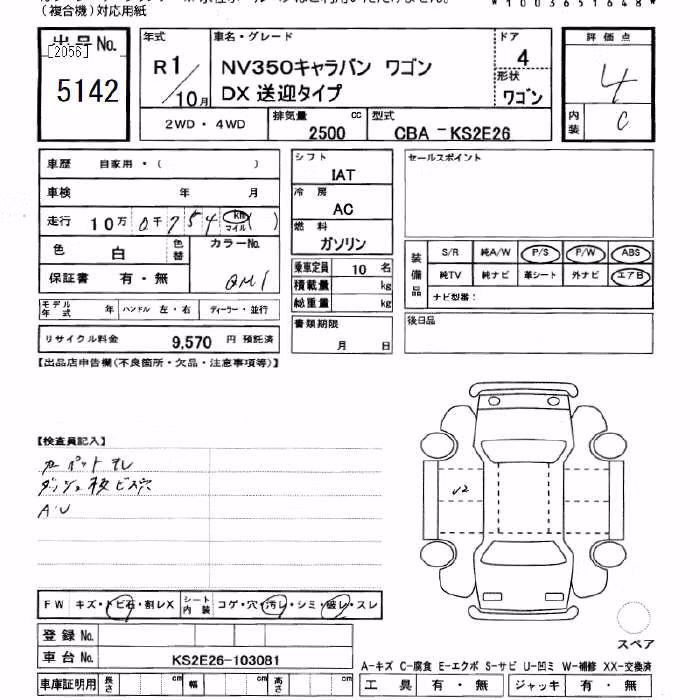 (複合機)対応用紙
*1003651648*
出品No.
[2056]
5142
年式
R1/10月
車名・グレード
NV350キャラバン ワゴン
DX 送迎タイプ
ドア
4
形状
ワゴン
2WD・4WD
排気量 2500 cc
型式 CBA-KS2E26
評価点
4
内装
C
車歴 自家用・( )
車検 年 月
走行 10万 0千 754 km マイル ( )
色 白 色替
カラーNo.
QM1
保証書 有・無
モデル年式 年 ハンドル 左・右 ディーラー・並行
リサイクル料金 9,570 円 預託済
シフト
IAT
冷房
AC
燃料
ガソリン
乗車定員 10 名
積載量 kg
総重量 kg
書類期限
月 日
セールスポイント
装備品
S/R 純A/W P/S P/W ABS
純TV 純ナビ 革シート 外ナビ エアB
ナビ型番:
後日品
【出品店申告欄(不良箇所・欠品・注意事項等)】
【検査員記入】
カーペットヨレ
ダッシュ板ビス穴
AU
U2
FW キズ・トビ石・割レX
シート内装 コゲ・穴・汚レ・シミ・破レ・スレ
登録No.
車台No. KS2E26-103081
車庫証明用 長さ cm 幅 cm 高さ cm
スペア
A-キズ C-腐食 E-エクボ S-サビ U-凹ミ W-補修 XX-交換済
工具 有・無 ジャッキ 有・無